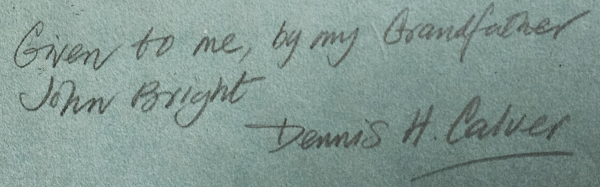 Given to me, by my Grandfather
John Bright
Dennis H. Calver